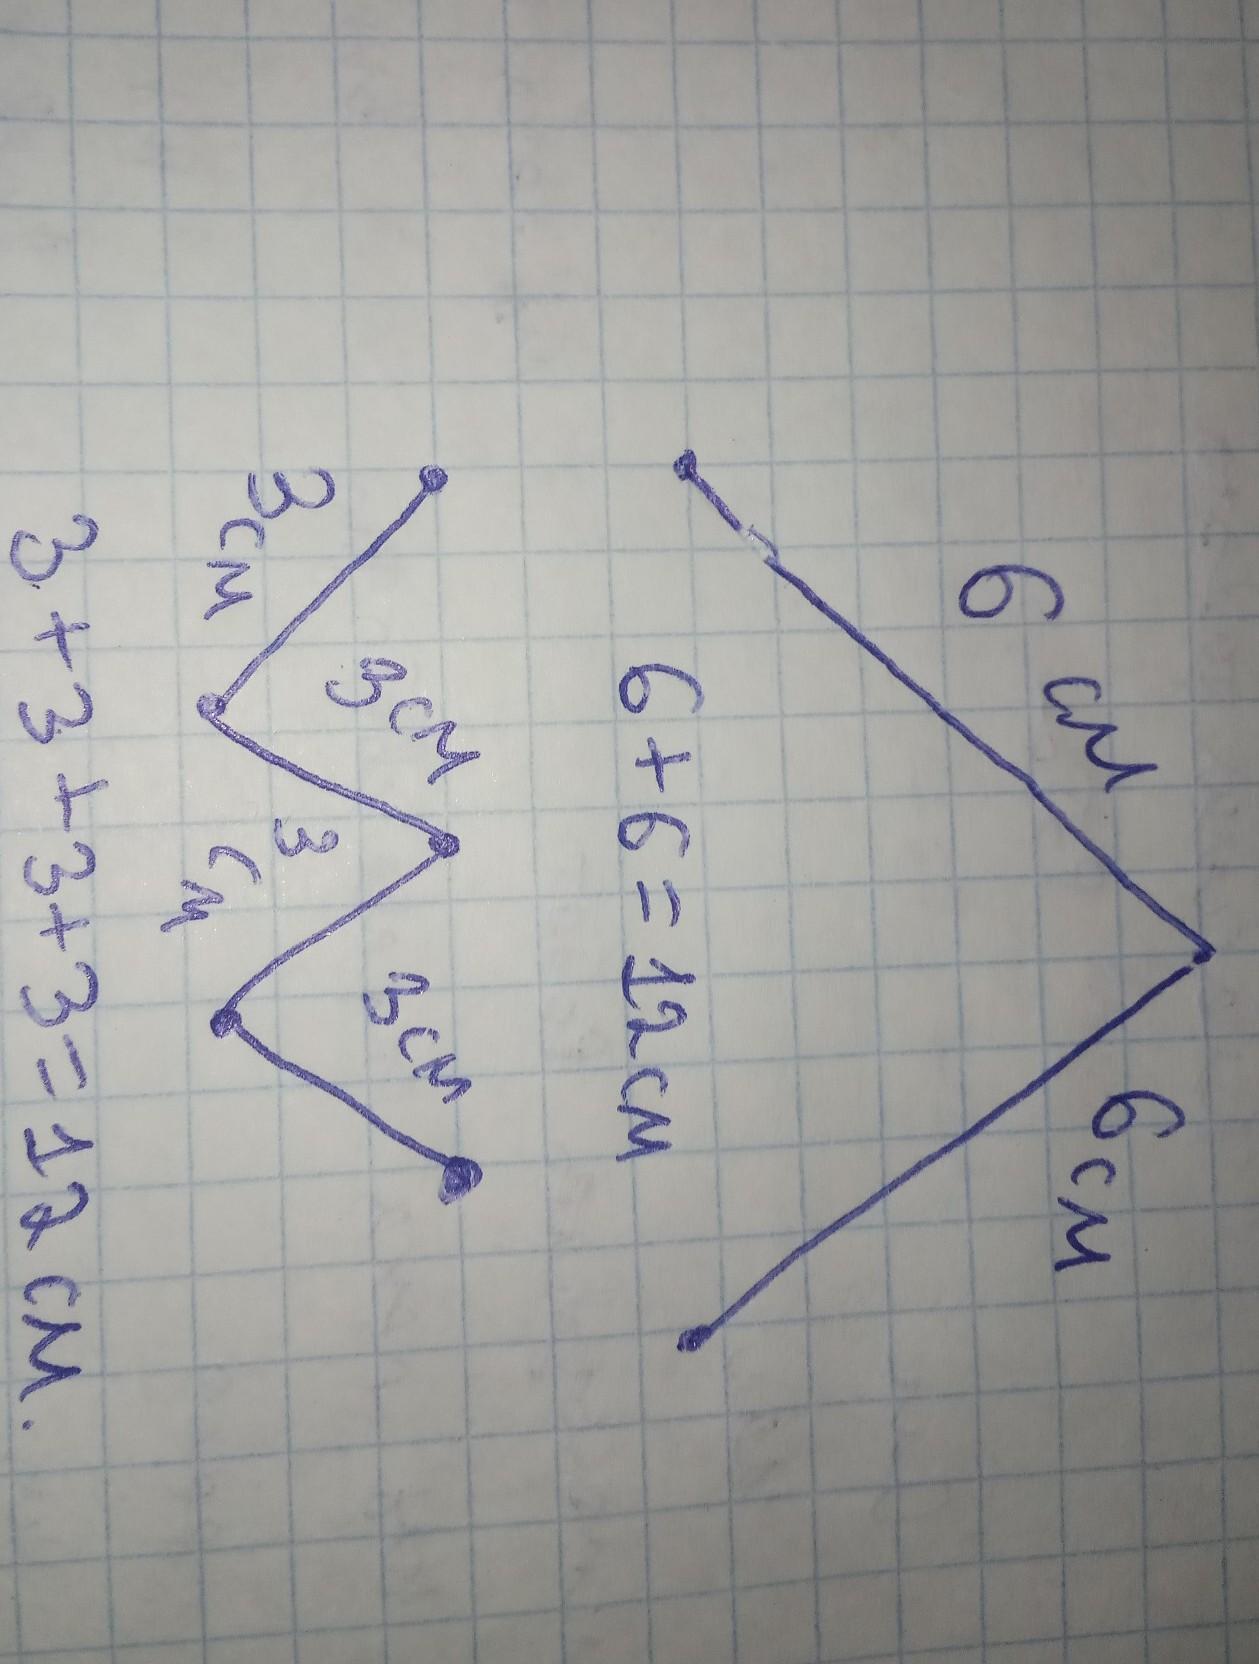 6 см
6 см
6 + 6 = 12 см
3 см
3 см
3 см
3 см
3 + 3 + 3 + 3 = 12 см.